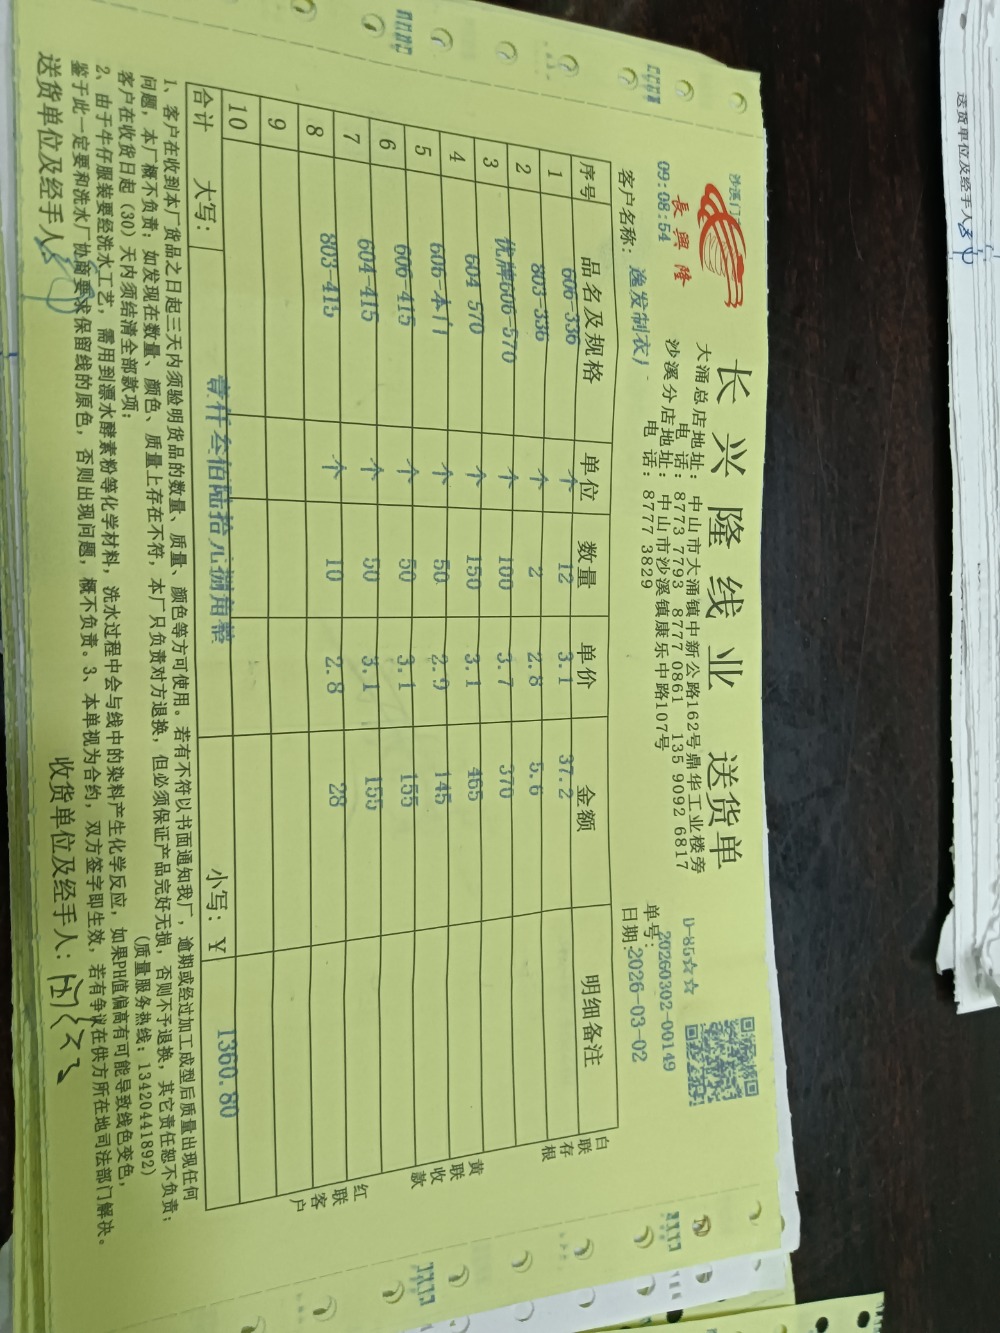 长兴隆线业 送货单
沙溪门
長興隆
09:08:54
大涌总店地址: 中山市大涌镇中新公路162号鼎华工业楼旁
电话: 8773 7793 8777 0861 135 9092 6817
沙溪分店地址: 中山市沙溪镇康乐中路107号
电话: 8777 3829
D-85☆☆
单号: 20260302-00149
客户名称: 逸发制衣厂
日期: 2026-03-02
序号 品名及规格 单位 数量 单价 金额 明细备注
1 606-336 个 12 3.1 37.2
2 803-336 个 2 2.8 5.6
3 优牌606-570 个 100 3.7 370
4 604 570 个 150 3.1 465
5 606-本门 个 50 2.9 145
6 606-415 个 50 3.1 155
7 604-415 个 50 3.1 155
8 803-415 个 10 2.8 28
9
10
合计 大写: 壹仟叁佰陆拾元捌角整 小写: ¥ 1360.80
白联存根
黄联收款
红联客户
1、客户在收到本厂货品之日起三天内须验明货品的数量、质量、颜色等方可使用。若有不符以书面通知我厂,逾期或经过加工成型后质量出现任何
问题,本厂概不负责;如发现在数量、颜色、质量上存在不符,本厂只负责对方退换,但必须保证产品完好无损,否则不予退换,其它责任恕不负责;
客户在收货日起(30)天内须结清全部款项; (质量服务热线:13420441892)
2、由于牛仔服装要经洗水工艺,需用到漂水酵素粉等化学材料,洗水过程中会与线中的染料产生化学反应,如果PH值偏高有可能导致线色变色,
鉴于此一定要和洗水厂协商要求保留线的原色,否则出现问题,概不负责。3、本单视为合约,双方签字即生效,若有争议在供方所在地司法部门解决。
送货单位及经手人 收货单位及经手人:
送货单位及经手人